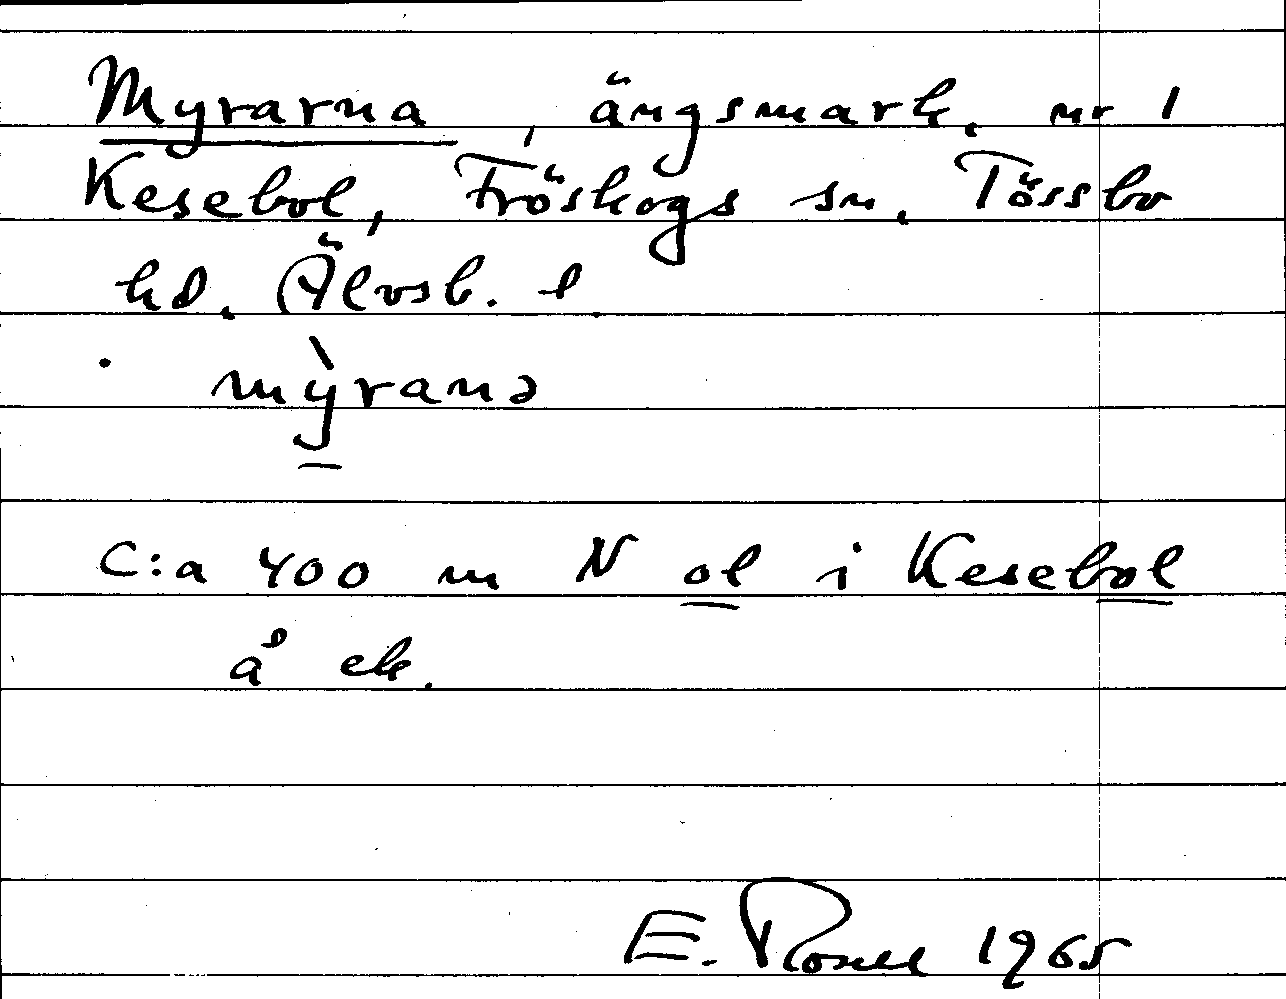 Myrarna, ängsmark. nr 1
Kesebol, Fröskogs sn. Tössbo
hd. Älvsb. l
mỳranə
C:a 400 m N ol i Kesebol
å ek.
E. Rosell 1965